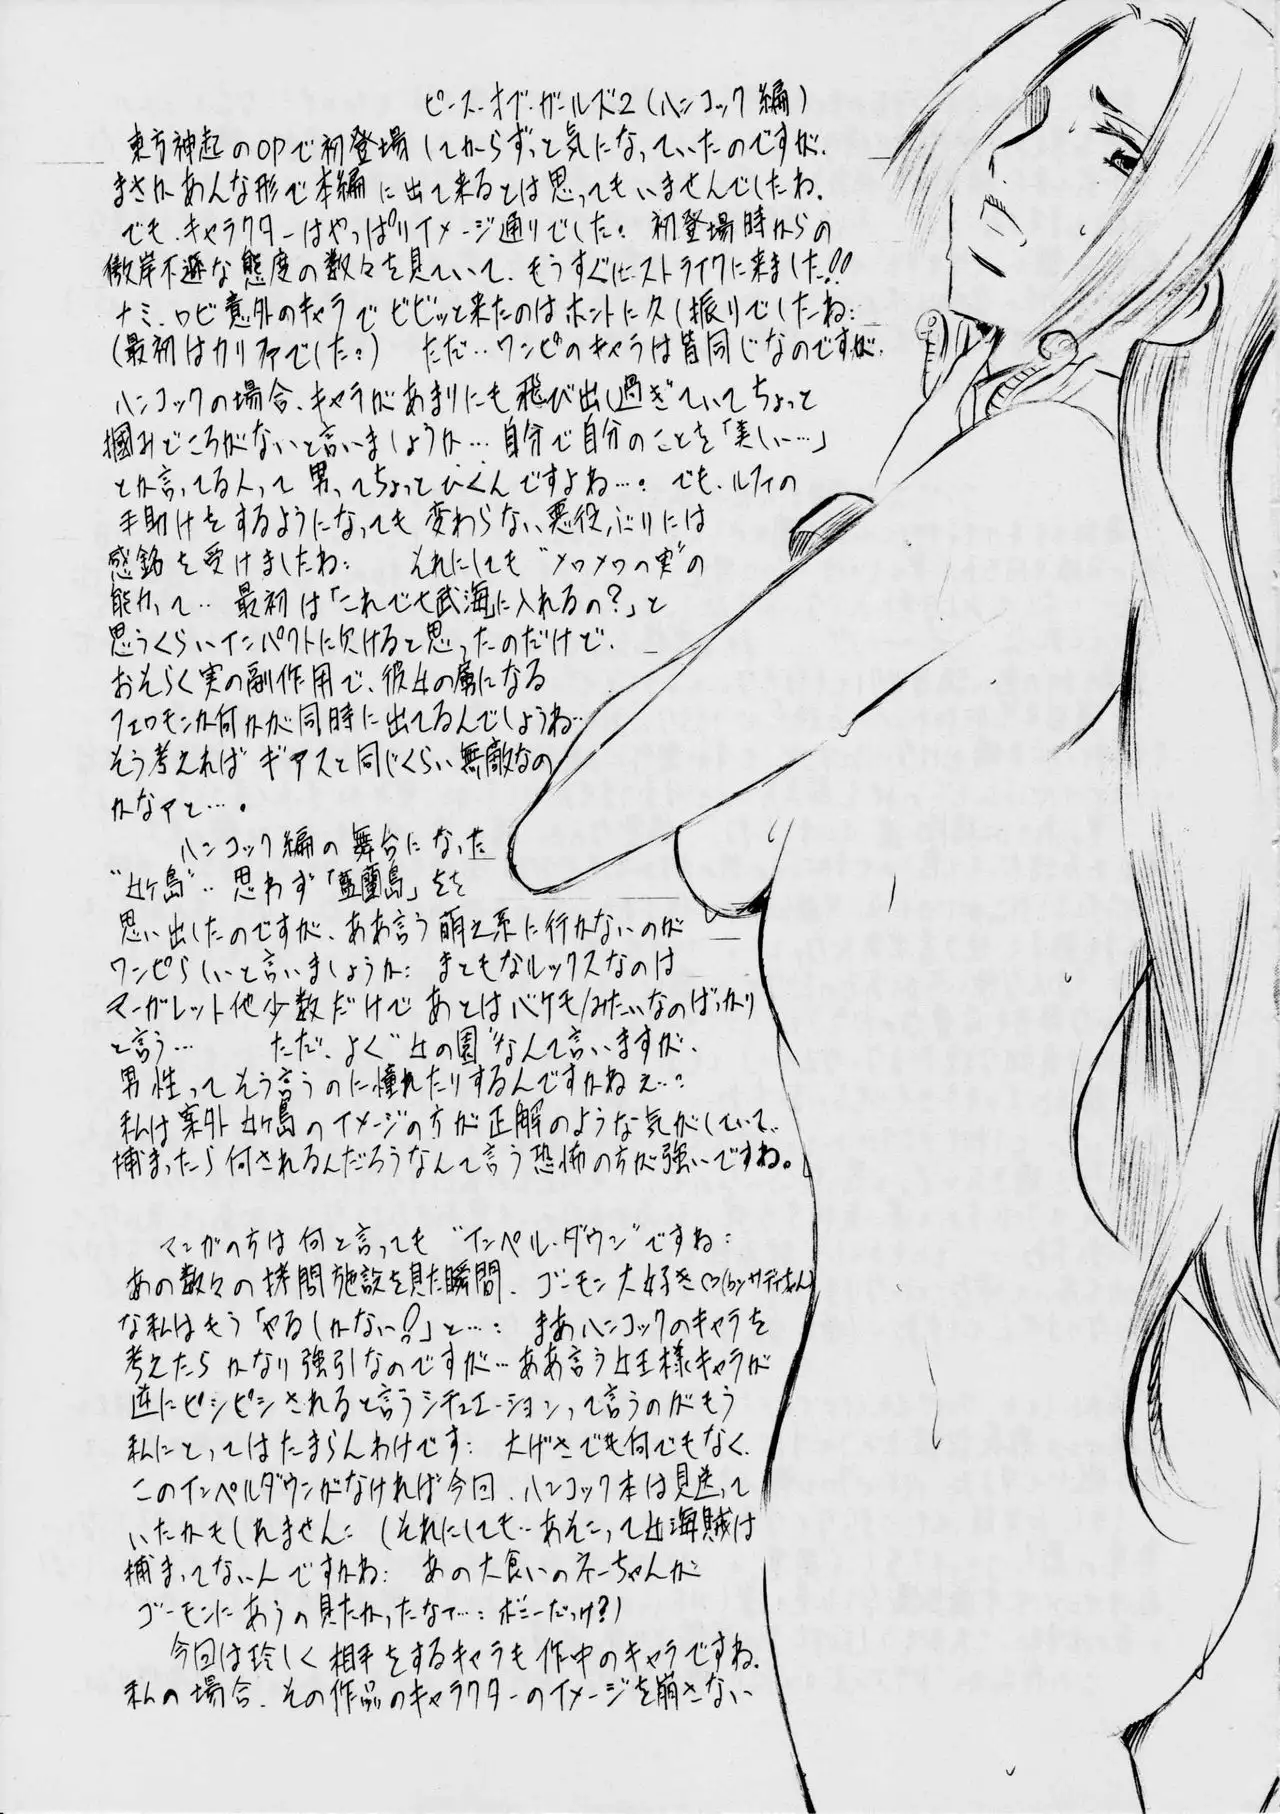 ピース・オブ・ガールズ2(ハンコック編)
東方神起のOPで初登場してからずっと気になっていたのですが、
まさかあんな形で本編に出て来るとは思ってもいませんでしたね。
でも、キャラクターはやっぱりイメージ通りでした。初登場時からの
傲岸不遜な態度の数々を見ていて、もうすぐにストライクに来ました!!
ナミ、ロビ意外のキャラでビビッと来たのはホントに久し振りでしたね:
(最初はカリファでした:) ただ‥ワンピのキャラは皆同じなのですが、
ハンコックの場合、キャラがあまりにも飛び出し過ぎていてちょっと
掴みどころがないと言いましょうか…自分で自分のことを「美しい…」
とか言ってる人って男ってちょっとひくんですよね…。でも、ルフィの
手助けをするようになっても変わらない悪役ぶりには
感銘を受けましたね: それにしても"メロメロの実"の
能力って‥最初は「これで七武海に入れるの?」と
思うくらいインパクトに欠けると思ったのだけど、
おそらく実の副作用で、彼女の虜になる
フェロモンか何かが同時に出てるんでしょうね…
そう考えればギアスと同じくらい無敵なの
かなァと…。
ハンコック編の舞台になった
"女ヶ島"‥思わず「藍蘭島」をを
思い出したのですが、ああ言う萌え系に行かないのが
ワンピらしいと言いましょうか: まともなルックスなのは
マーガレット他少数だけであとはバケモノみたいなのばっかり
と言う… ただ、よく"女の園"なんて言いますが、
男性ってそう言うのに憧れたりするんですかねぇ…:
私は案外女ヶ島のイメージの方が正解のような気がしていて、
捕まったら何されるんだろうなんて言う恐怖の方が強いですね。
マンガの方は何と言っても"インペル・ダウン"ですね:
あの数々の拷問施設を見た瞬間、ゴーモン大好き♡(by サディちゃん)
な私はもう「やるしかない!?」と…: まあハンコックのキャラを
考えたらかなり強引なのですが…ああ言う女王様キャラが
逆にピシピシされると言うシチュエーションって言うのがもう
私にとってはたまらんわけです: 大げさでも何でもなく、
このインペルダウンがなければ今回、ハンコック本は見送って
いたかもしれません: (それにしても‥あそこって女海賊は
捕まってないんですかね: あの大食いのネーちゃんが
ゴーモンにあうの見たかったなァ…:ボニーだっけ?)
今回は珍しく相手をするキャラも作中のキャラですね。
私の場合、その作品のキャラクターのイメージを崩さない